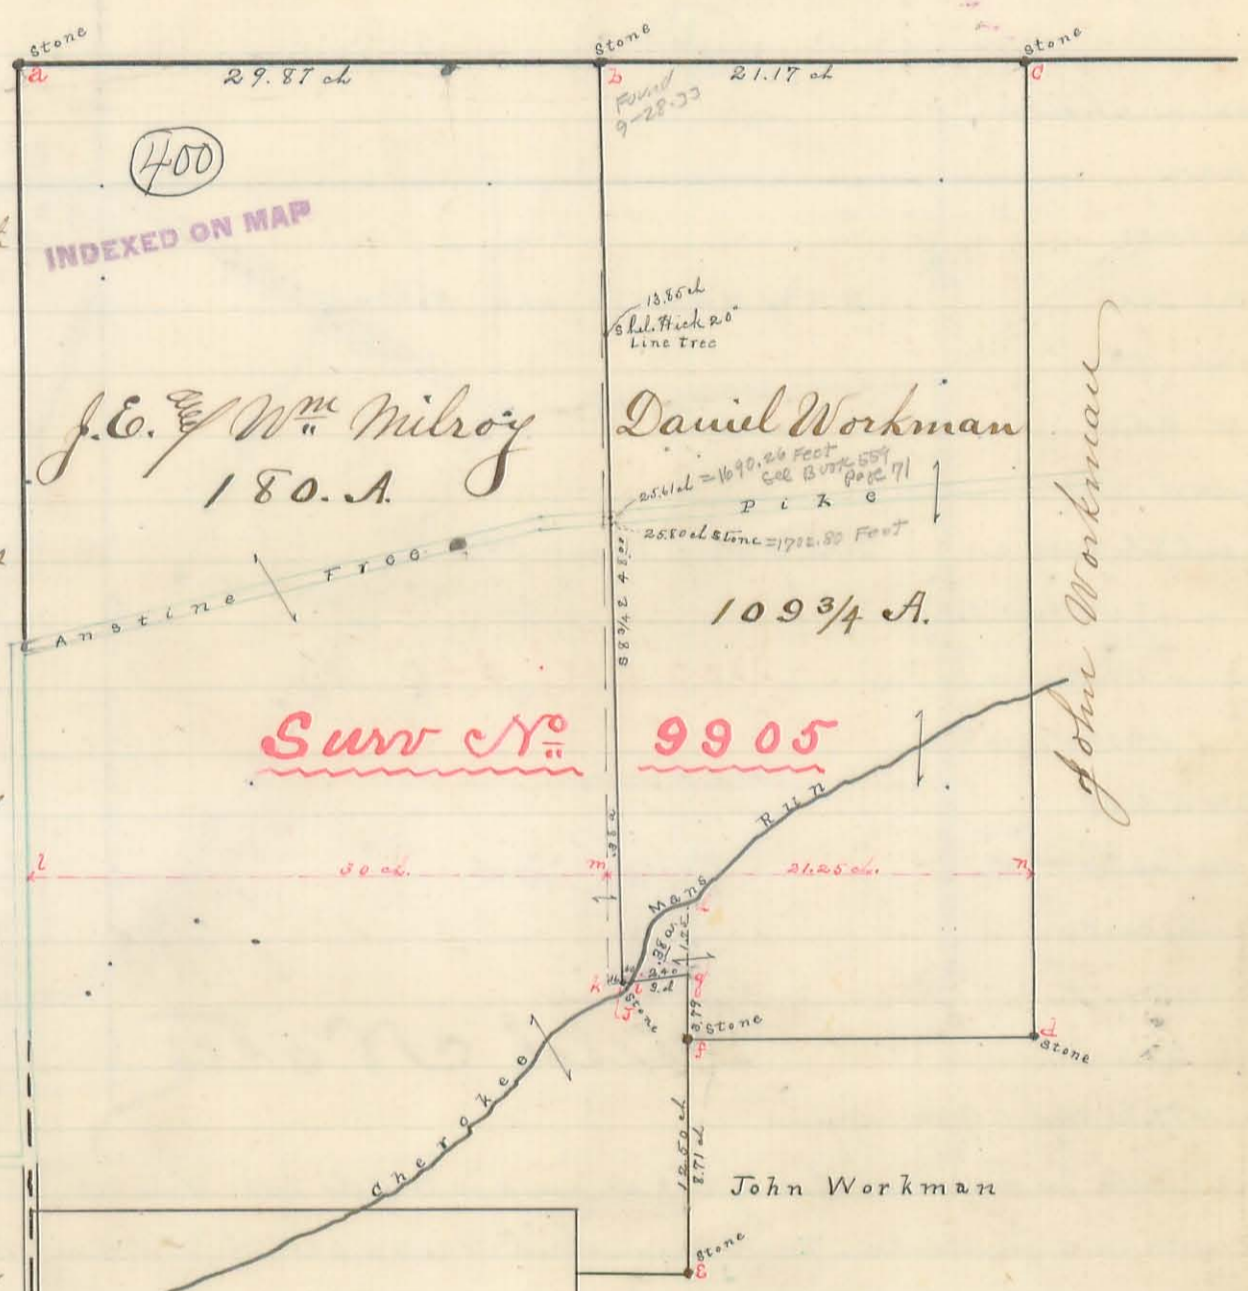 Stone
Stone
Stone
a
29.87 ch
b
21.17 ch
c
Found
9-28-33
400
INDEXED ON MAP
13.85 ch
Shel. Hick 20"
Line tree
J.E. & Wm Milroy
180. A.
Daniel Workman
25.61 ch = 1690.26 Feet
See Book 559
page 71
Pike
25.80 ch Stone = 1702.80 Feet
Anstine Free
S 8 3/4 E 48.00
109 3/4 A.
John Workman
Surv No 9905
Run
l
30 ch.
m
21.25 ch.
n
Mans
.38 a
1.25
2.40
g
k
i
Stone
Stone
d
Stone
Cherokee
12.50 ch
8.71 ch
John Workman
Stone
E